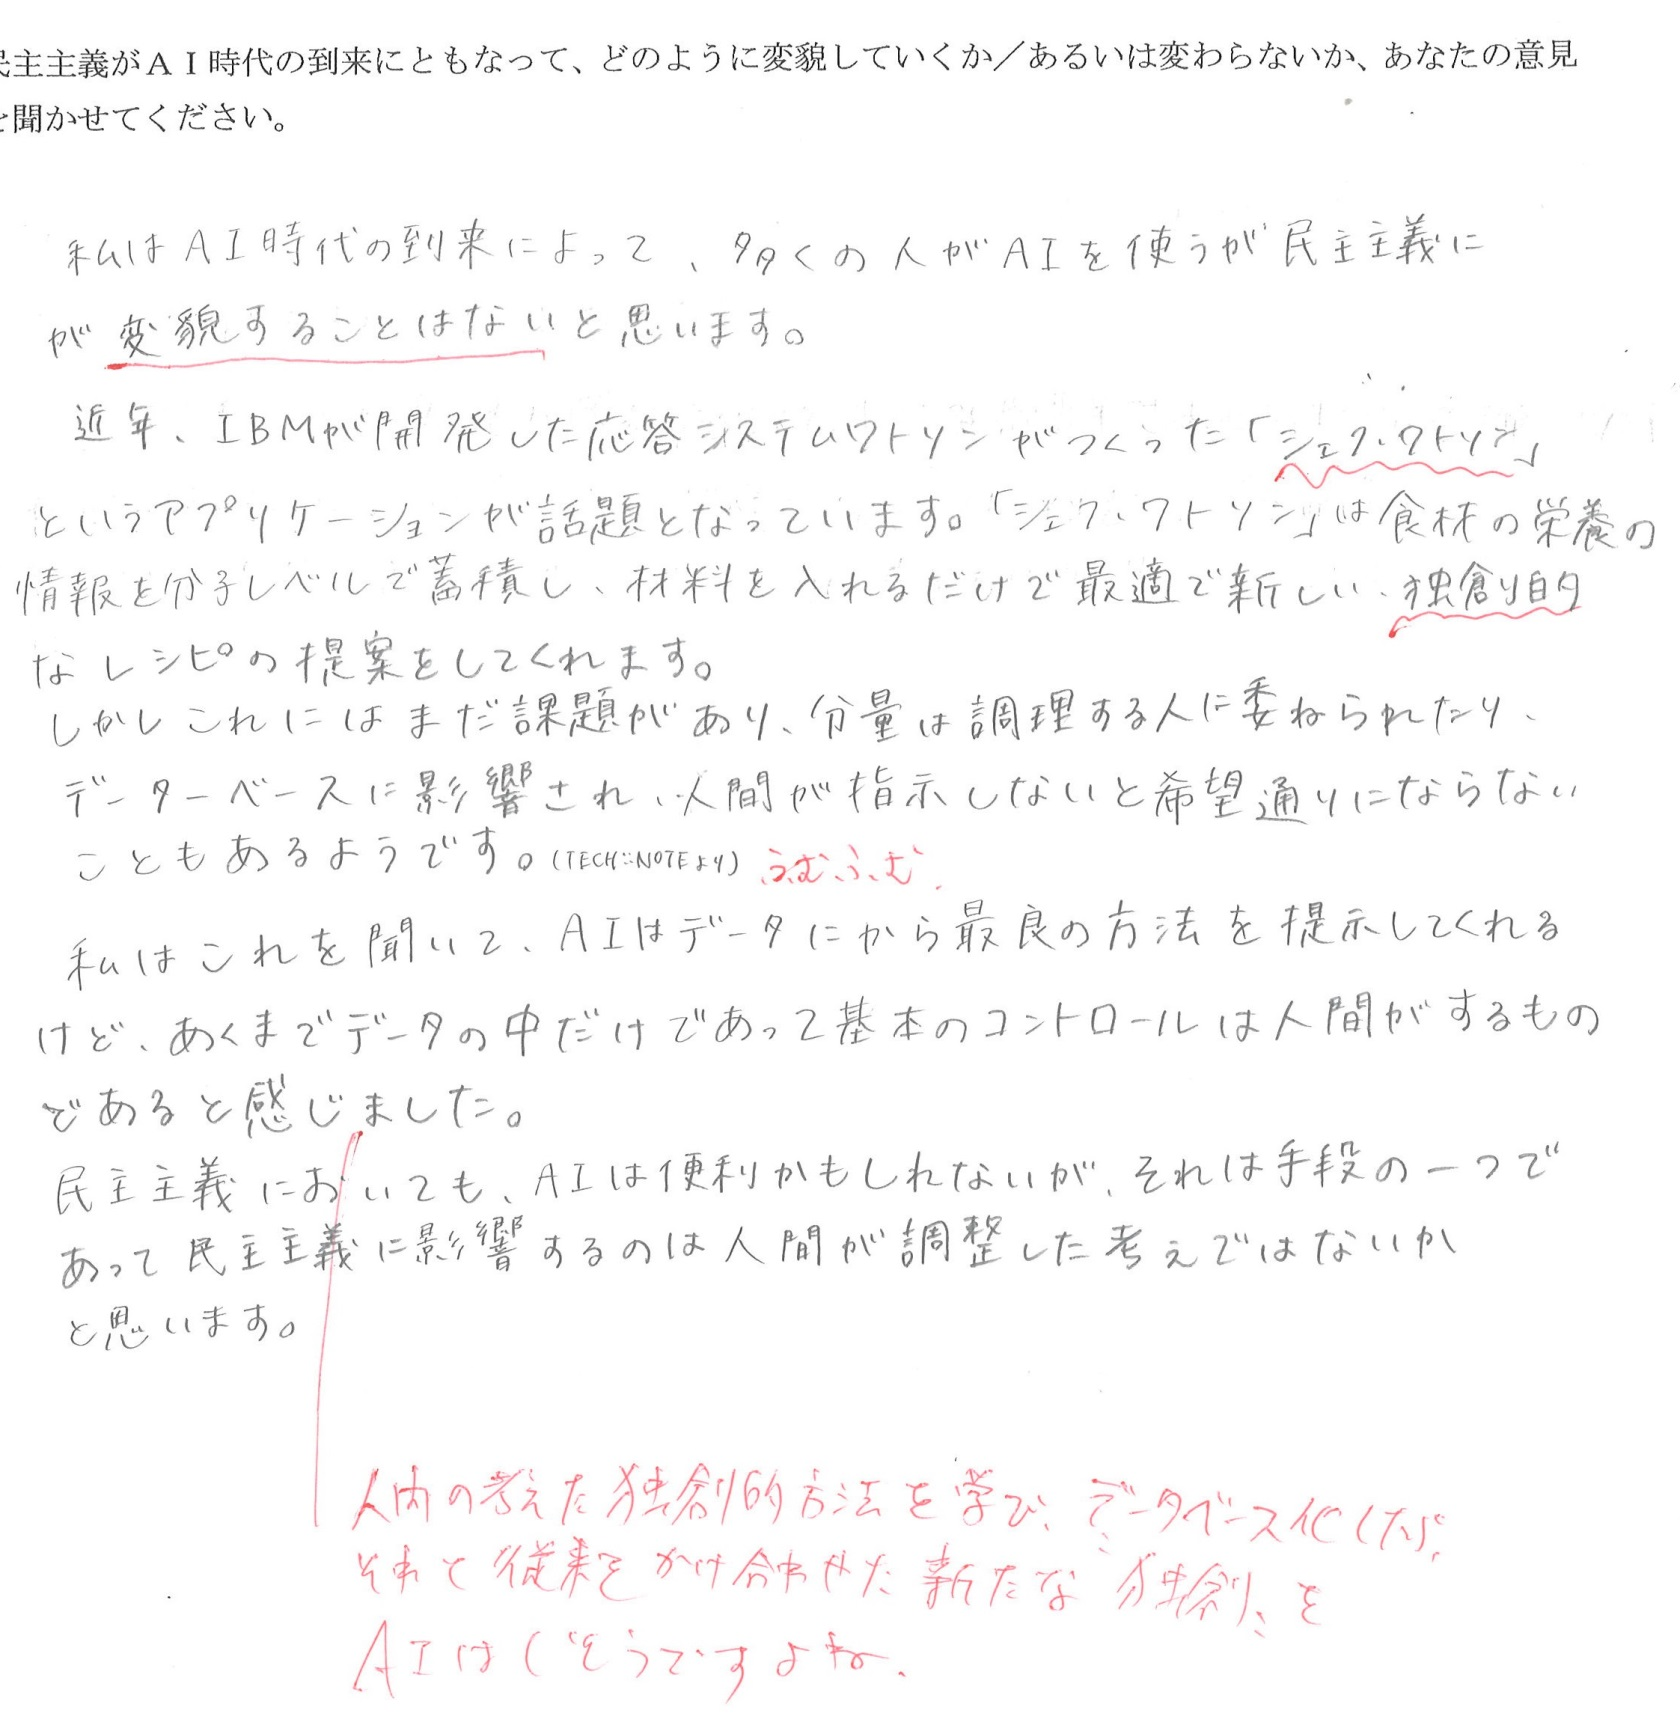 民主主義がＡＩ時代の到来にともなって、どのように変貌していくか／あるいは変わらないか、あなたの意見
を聞かせてください。
私はAI時代の到来によって、多くの人がAIを使うが民主主義に
が変貌することはないと思います。
近年、IBMが開発した応答システムワトソンがつくった「シェフ・ワトソン」
というアプリケーションが話題となっています。「シェフ・ワトソン」は食材の栄養の
情報を分子レベルで蓄積し、材料を入れるだけで最適で新しい、独創的
なレシピの提案をしてくれます。
しかしこれにはまだ課題があり、分量は調理する人に委ねられたり、
データーベースに影響され、人間が指示しないと希望通りにならない
こともあるようです。(TECH::NOTEより) ふむふむ.
私はこれを聞いて、AIはデータにから最良の方法を提示してくれる
けど、あくまでデータの中だけであって基本のコントロールは人間がするもの
であると感じました。
民主主義においても、AIは便利かもしれないが、それは手段の一つで
あって民主主義に影響するのは人間が調整した考えではないか
と思います。
の考えた独創的方法を学び、データベース化したら、
それと従来をかけ合わせた新たな独創、を
AIはしそうですよね.